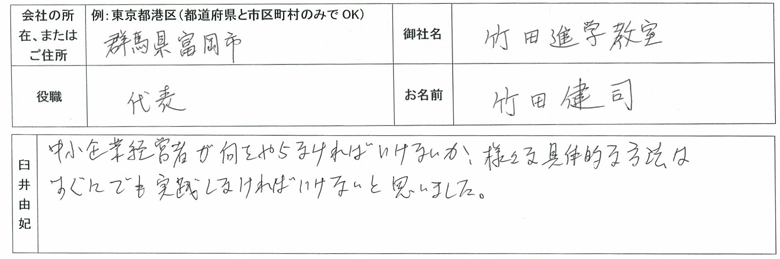 会社の所在、またはご住所
例：東京都港区（都道府県と市区町村のみでOK）
群馬県富岡市
御社名
竹田進学教室
役職
代表
お名前
竹田健司
臼井由妃
中小企業経営者が何をやらなければいけないか、様々な具体的な方法は
すぐにでも実践しなければいけないと思いました。